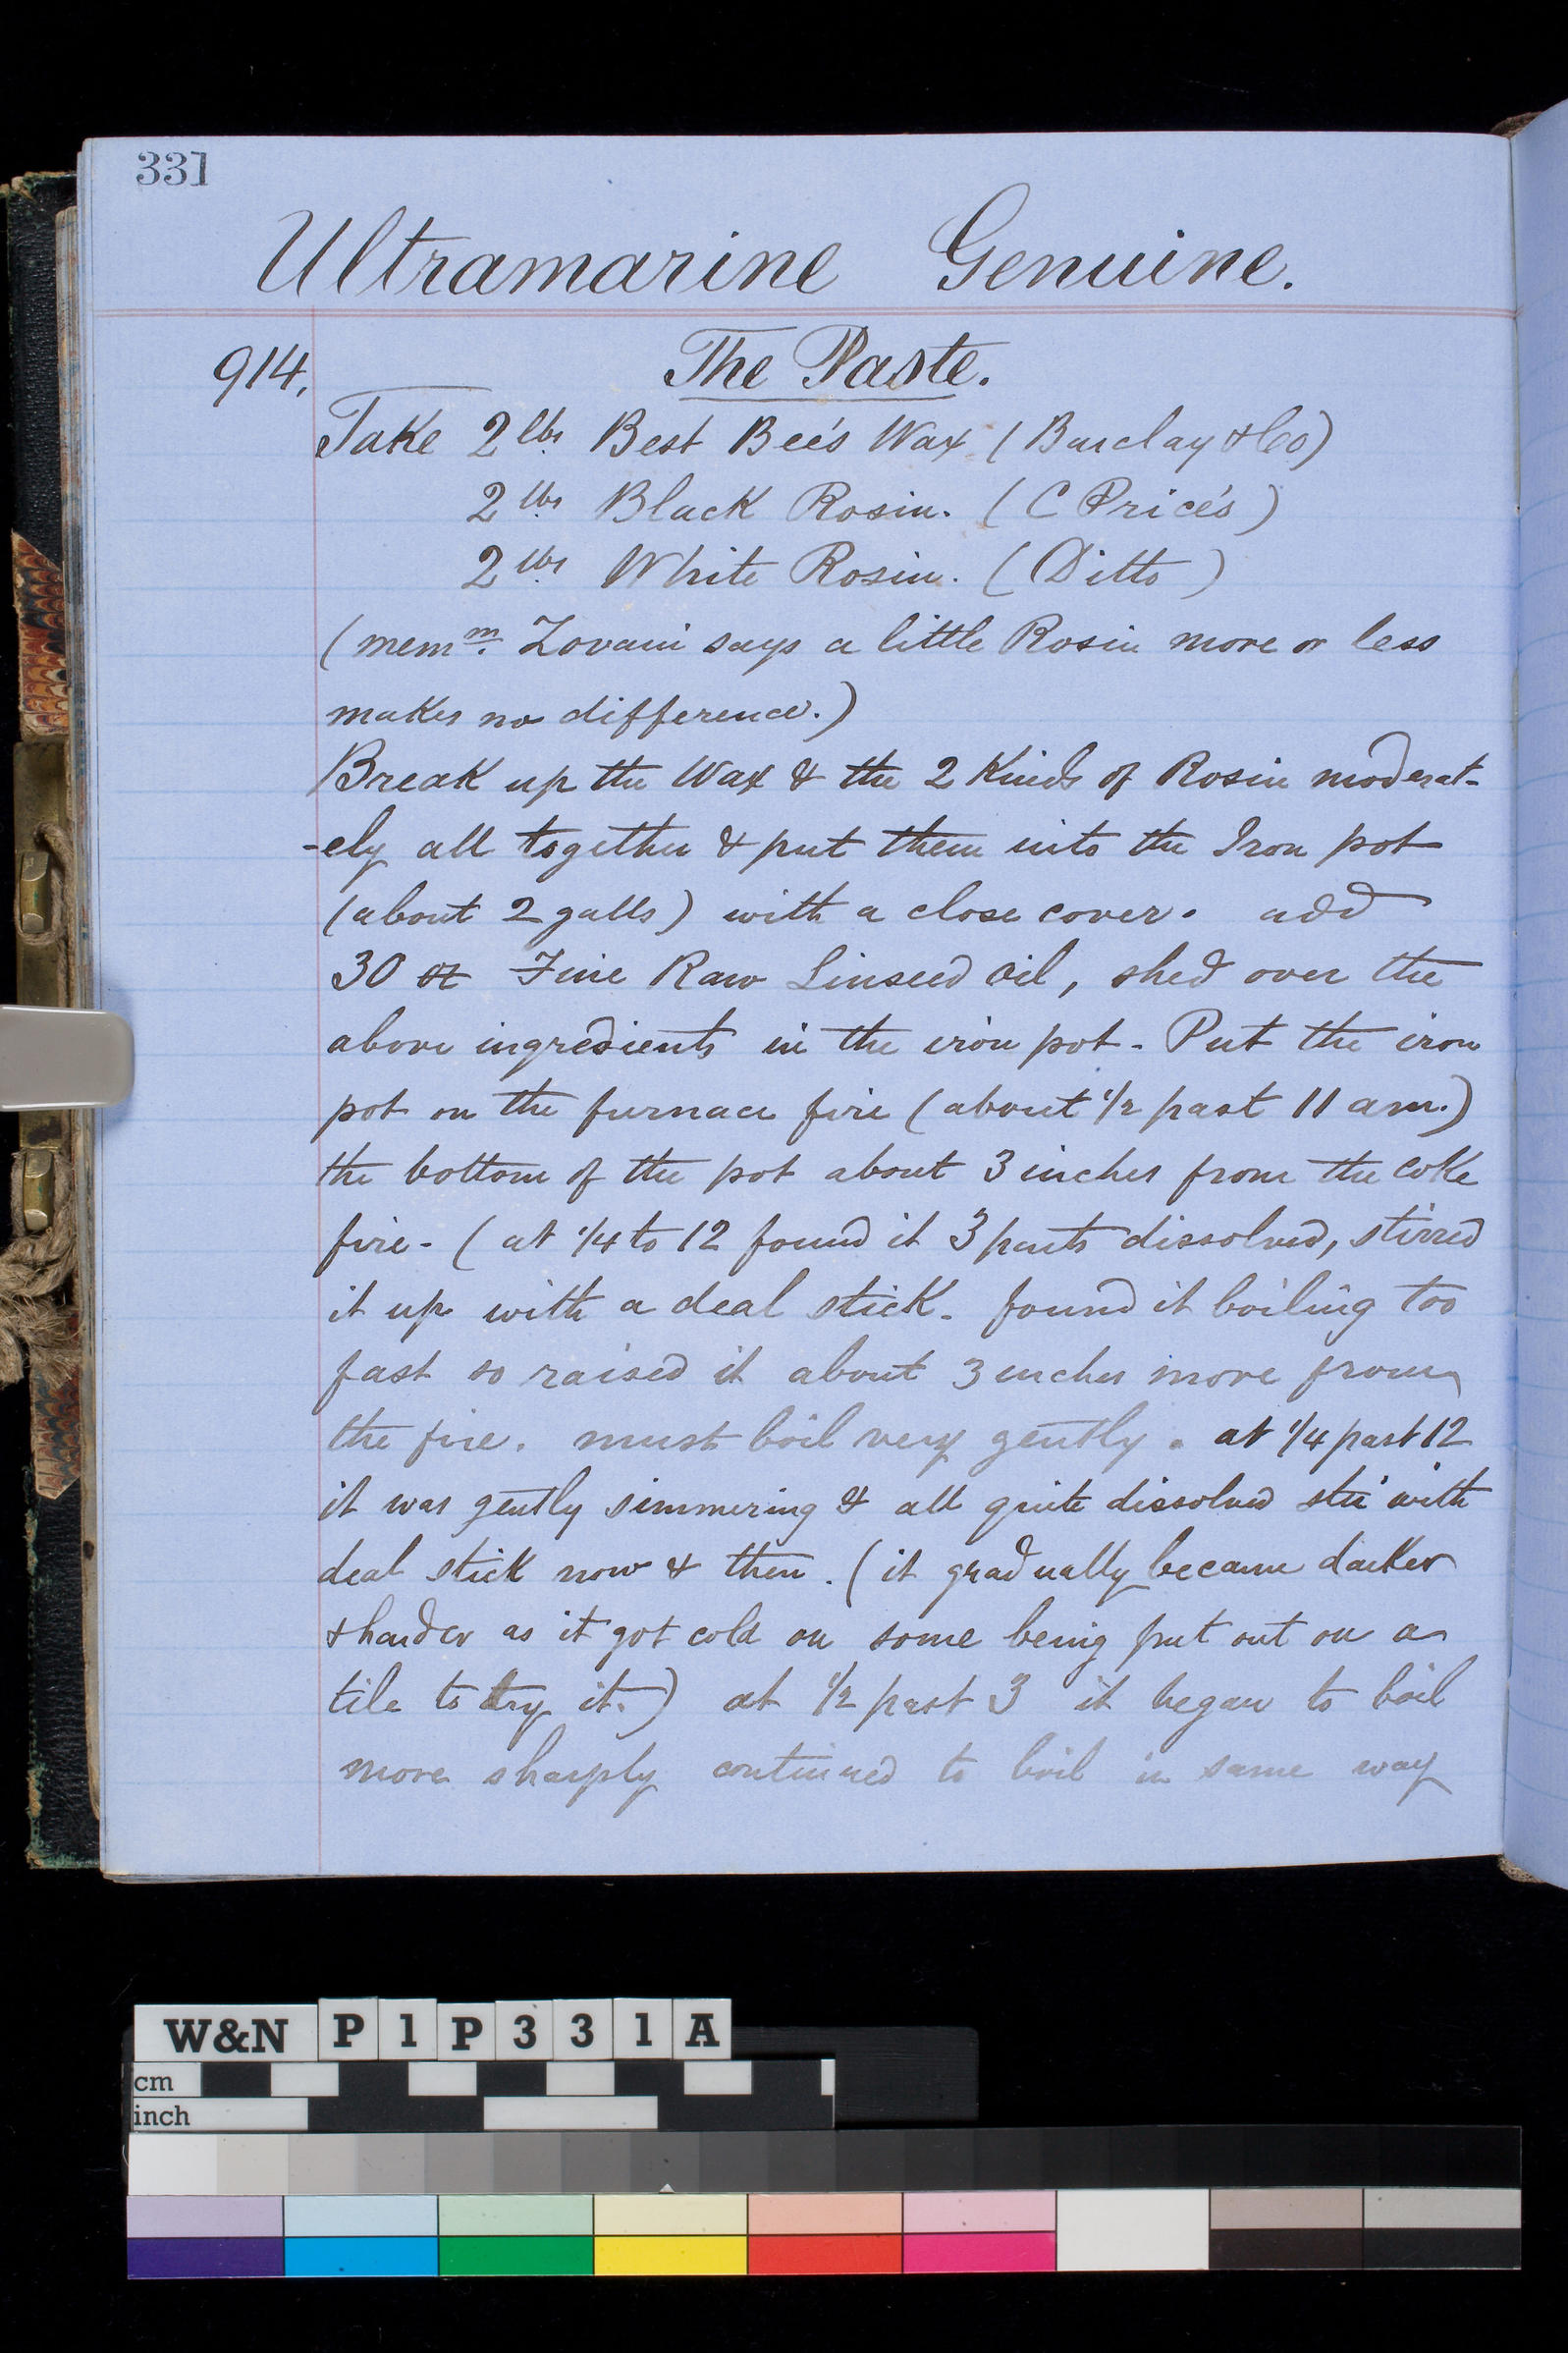 331
Ultramarine Genuine.
914. The Paste.
Take 2 lbs Best Bee's Wax (Barclay & Co)
2 lbs Black Rosin. (C Price's)
2 lbs White Rosin. (Ditto)
(memm. Zovani says a little Rosin more or less
makes no difference.)
Break up the Wax & the 2 Kinds of Rosin moderat-
-ely all together & put them into the Iron pot
(about 2 galls) with a close cover. add
30 oz Fine Raw Linseed Oil, shed over the
above ingredients in the iron pot - Put the iron
pot on the furnace fire (about 1/2 past 11 am.)
the bottom of the pot about 3 inches from the coke
fire - (at 1/4 to 12 found it 3 parts dissolved, stirred
it up with a deal stick - found it boiling too
fast so raised it about 3 inches more from
the fire. must boil very gently. at 1/4 past 12
it was gently simmering & all quite dissolved stir with
deal stick now & then. (it gradually became darker
& harder as it got cold on some being put out on a
tile to try it.) at 1/2 past 3 it began to boil
more sharply continued to boil in same way
W&N P1P331A
cm
inch